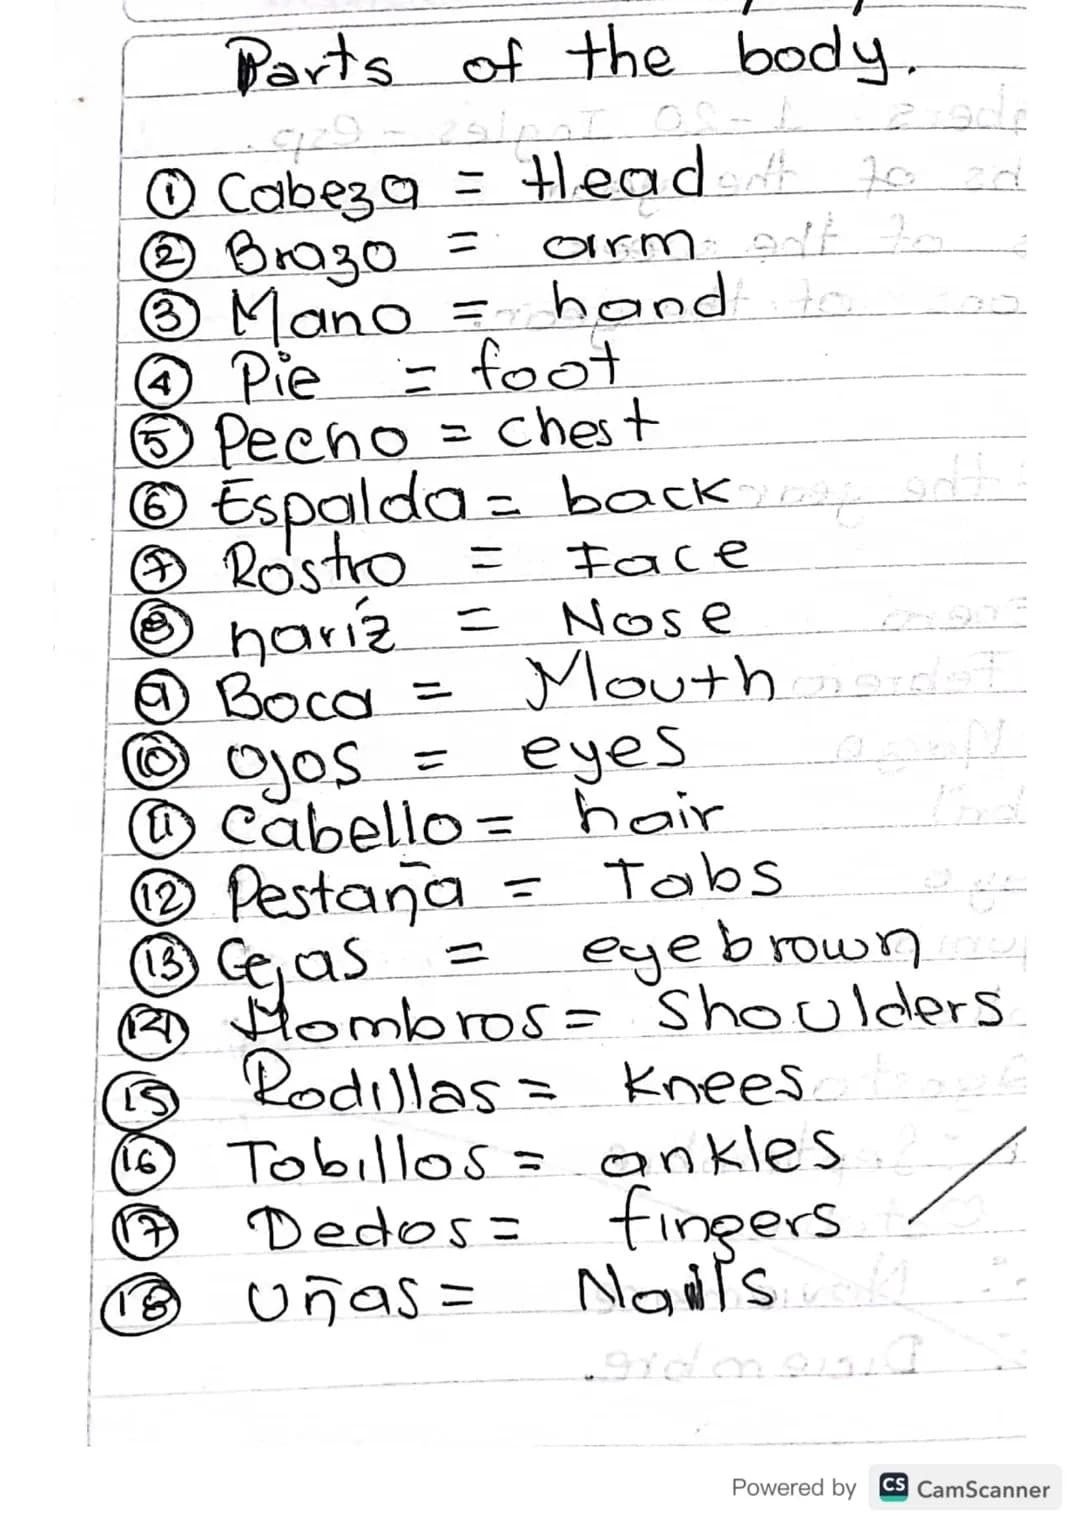 Parts of the body.
1 Cabeza = Head
2 Brazo = arm
3 Mano = hand
4 Pie = foot
5 Pecho = chest
6 Espalda = back
7 Rostro = Face
8 naríz = Nose
9 Boca = Mouth
10 Ojos = eyes
11 Cabello = hair
12 Pestaña = Tabs
13 Cejas = eyebrown
14 Hombros = Shoulders
15 Rodillas = Knees
16 Tobillos = ankles
17 Dedos = fingers
18 Uñas = Nails
Powered by CS CamScanner